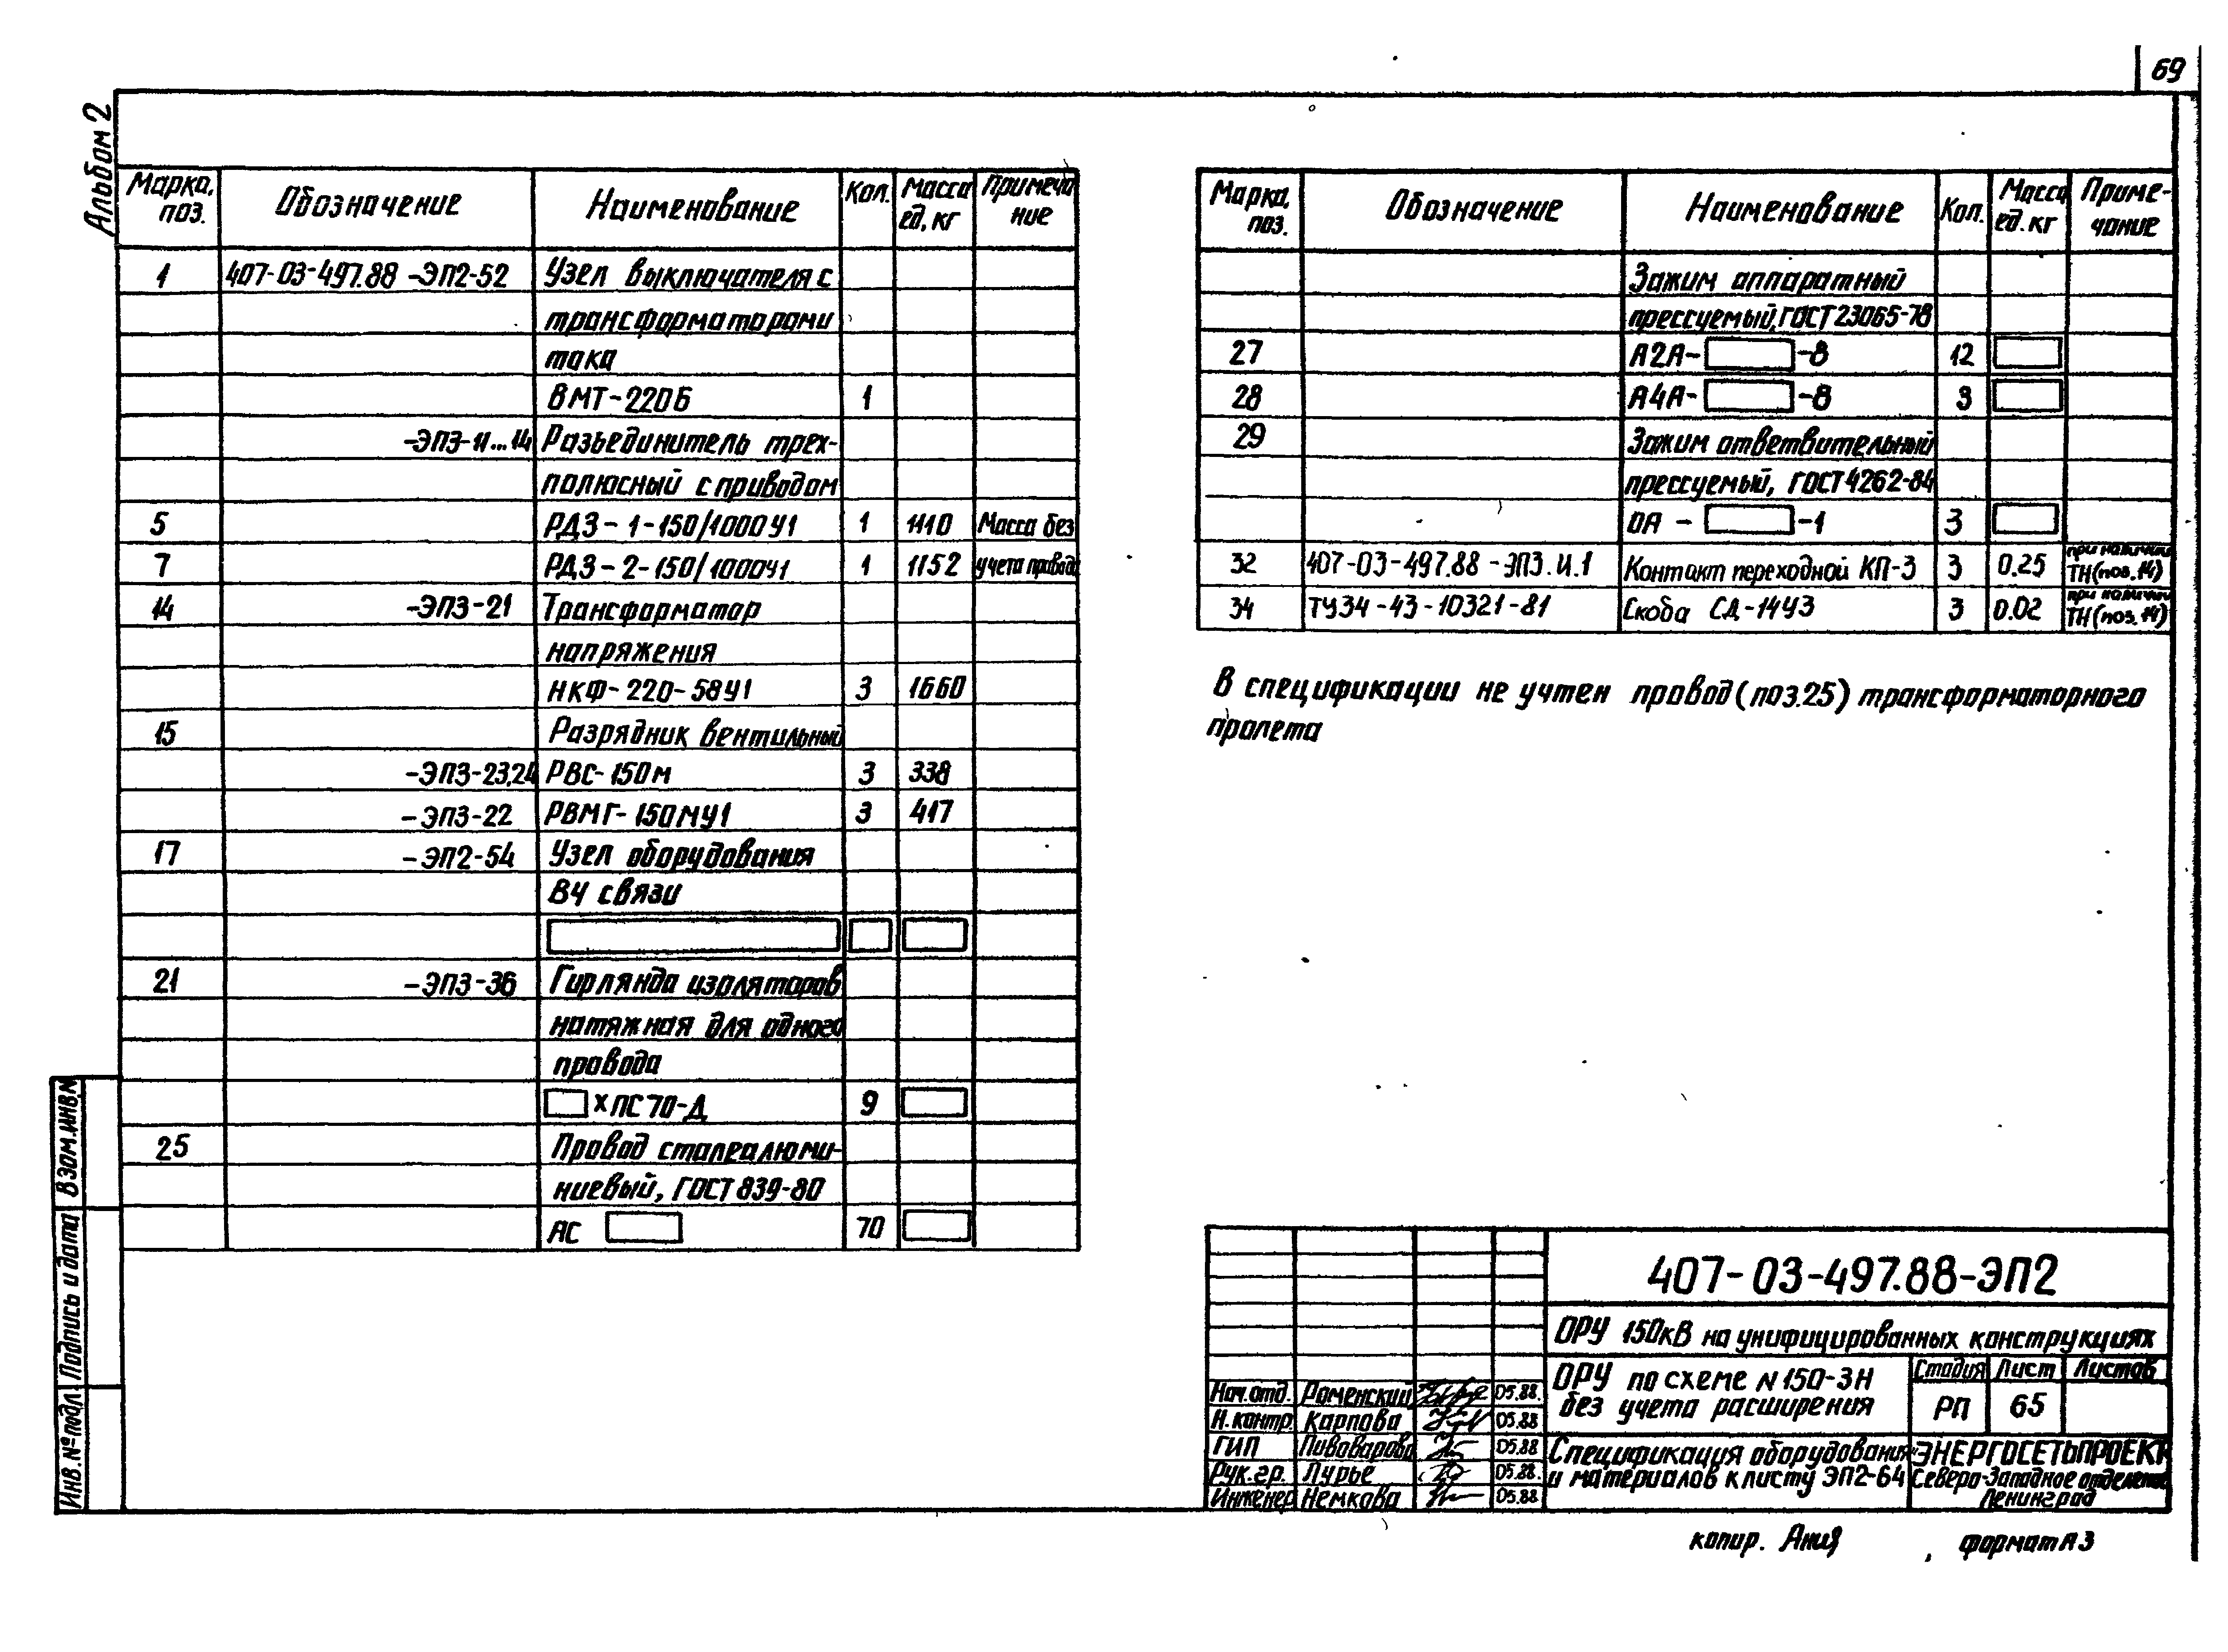 69
Альбом 2
Марка, поз. Обозначение Наименование Кол. Масса ед, кг Примечание
1 407-03-497.88 -ЭП2-52 Узел выключателя с
трансформаторами
тока
ВМТ-220Б 1
-ЭП3-11...14 Разъединитель трех-
полюсный с приводом
5 РДЗ-1-150/1000У1 1 1110 Масса без
7 РДЗ-2-150/1000У1 1 1152 учета привода
14 -ЭП3-21 Трансформатор
напряжения
НКФ-220-58У1 3 1660
15 Разрядник вентильный
-ЭП3-23,24 РВС-150м 3 338
-ЭП3-22 РВМГ-150МУ1 3 417
17 -ЭП2-54 Узел оборудования
ВЧ связи
21 -ЭП3-36 Гирлянда изоляторов
натяжная для одного
провода
хПС70-Д 9
25 Провод сталеалюми-
ниевый, ГОСТ 839-80
АС 70
Марка, поз. Обозначение Наименование Кол. Масса ед. кг Приме-чание
Зажим аппаратный
прессуемый, ГОСТ 23065-78
27 А2А- -8 12
28 А4А- -8 3
29 Зажим ответвительный
прессуемый, ГОСТ 4262-84
ОА - -1 3
32 407-03-497.88-ЭП3.И.1 Контакт переходной КП-3 3 0.25 при наличии ТН (поз.14)
34 ТУ34-43-10321-81 Скоба СД-14У3 3 0.02 при наличии ТН (поз.14)
В спецификации не учтен провод (поз.25) трансформаторного
пролета
407-03-497.88-ЭП2
ОРУ 150кВ на унифицированных конструкциях
ОРУ по схеме N150-3Н
без учета расширения
Стадия Лист Листов
РП 65
Нач.отд. Роменский 05.88.
Н.контр. Карпова 05.88
ГИП Пивоварова 05.88
Рук.гр. Лурье 05.88.
Инженер Немкова 05.88
Спецификация оборудования
и материалов к листу ЭП2-64
"ЭНЕРГОСЕТЬПРОЕКТ
Северо-Западное отделение
Ленинград
копир. формат А3
Взам.инв.N
Подпись и дата
Инв.№ подл.